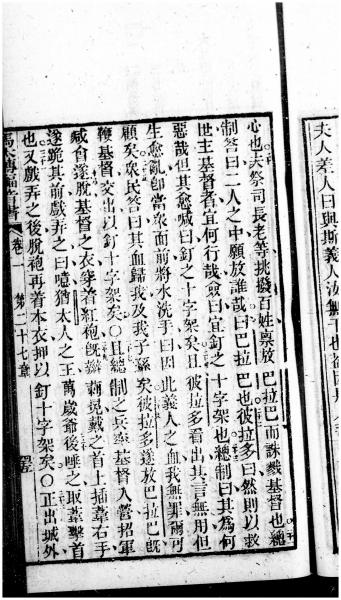 夫人差人曰與斯義人汝無干也
心也夫祭司長老等挑撥百姓禀放巴拉巴而誅戮基督也總
制答曰二人之中願放誰哉曰巴拉巴也彼拉多曰然則以救
世主基督者宜何行哉僉曰宜釘之十字架也總制曰其為何
惡哉但其愈喊曰釘之十字架矣且彼拉多看出其言無用但
生愈亂卽當衆面前將水洗手曰因此義人之血我無罪爾可
顧矣衆民答曰其血歸我及我子孫矣彼拉多遂放巴拉巴旣
鞭基督交出以釘十字架矣〇且總制之兵牽基督入營招軍
咸自遂脫基督之衣穿着紅袍旣辮蕀冕戴之首上插葦右手
遂跪其前戲弄之曰噫猶太人之王萬歲爺後唾之取葦擊首
也又戲弄之後脫袍再着本衣押以釘十字架矣〇正出城外
馬太傳福音書 卷一 第二十七章